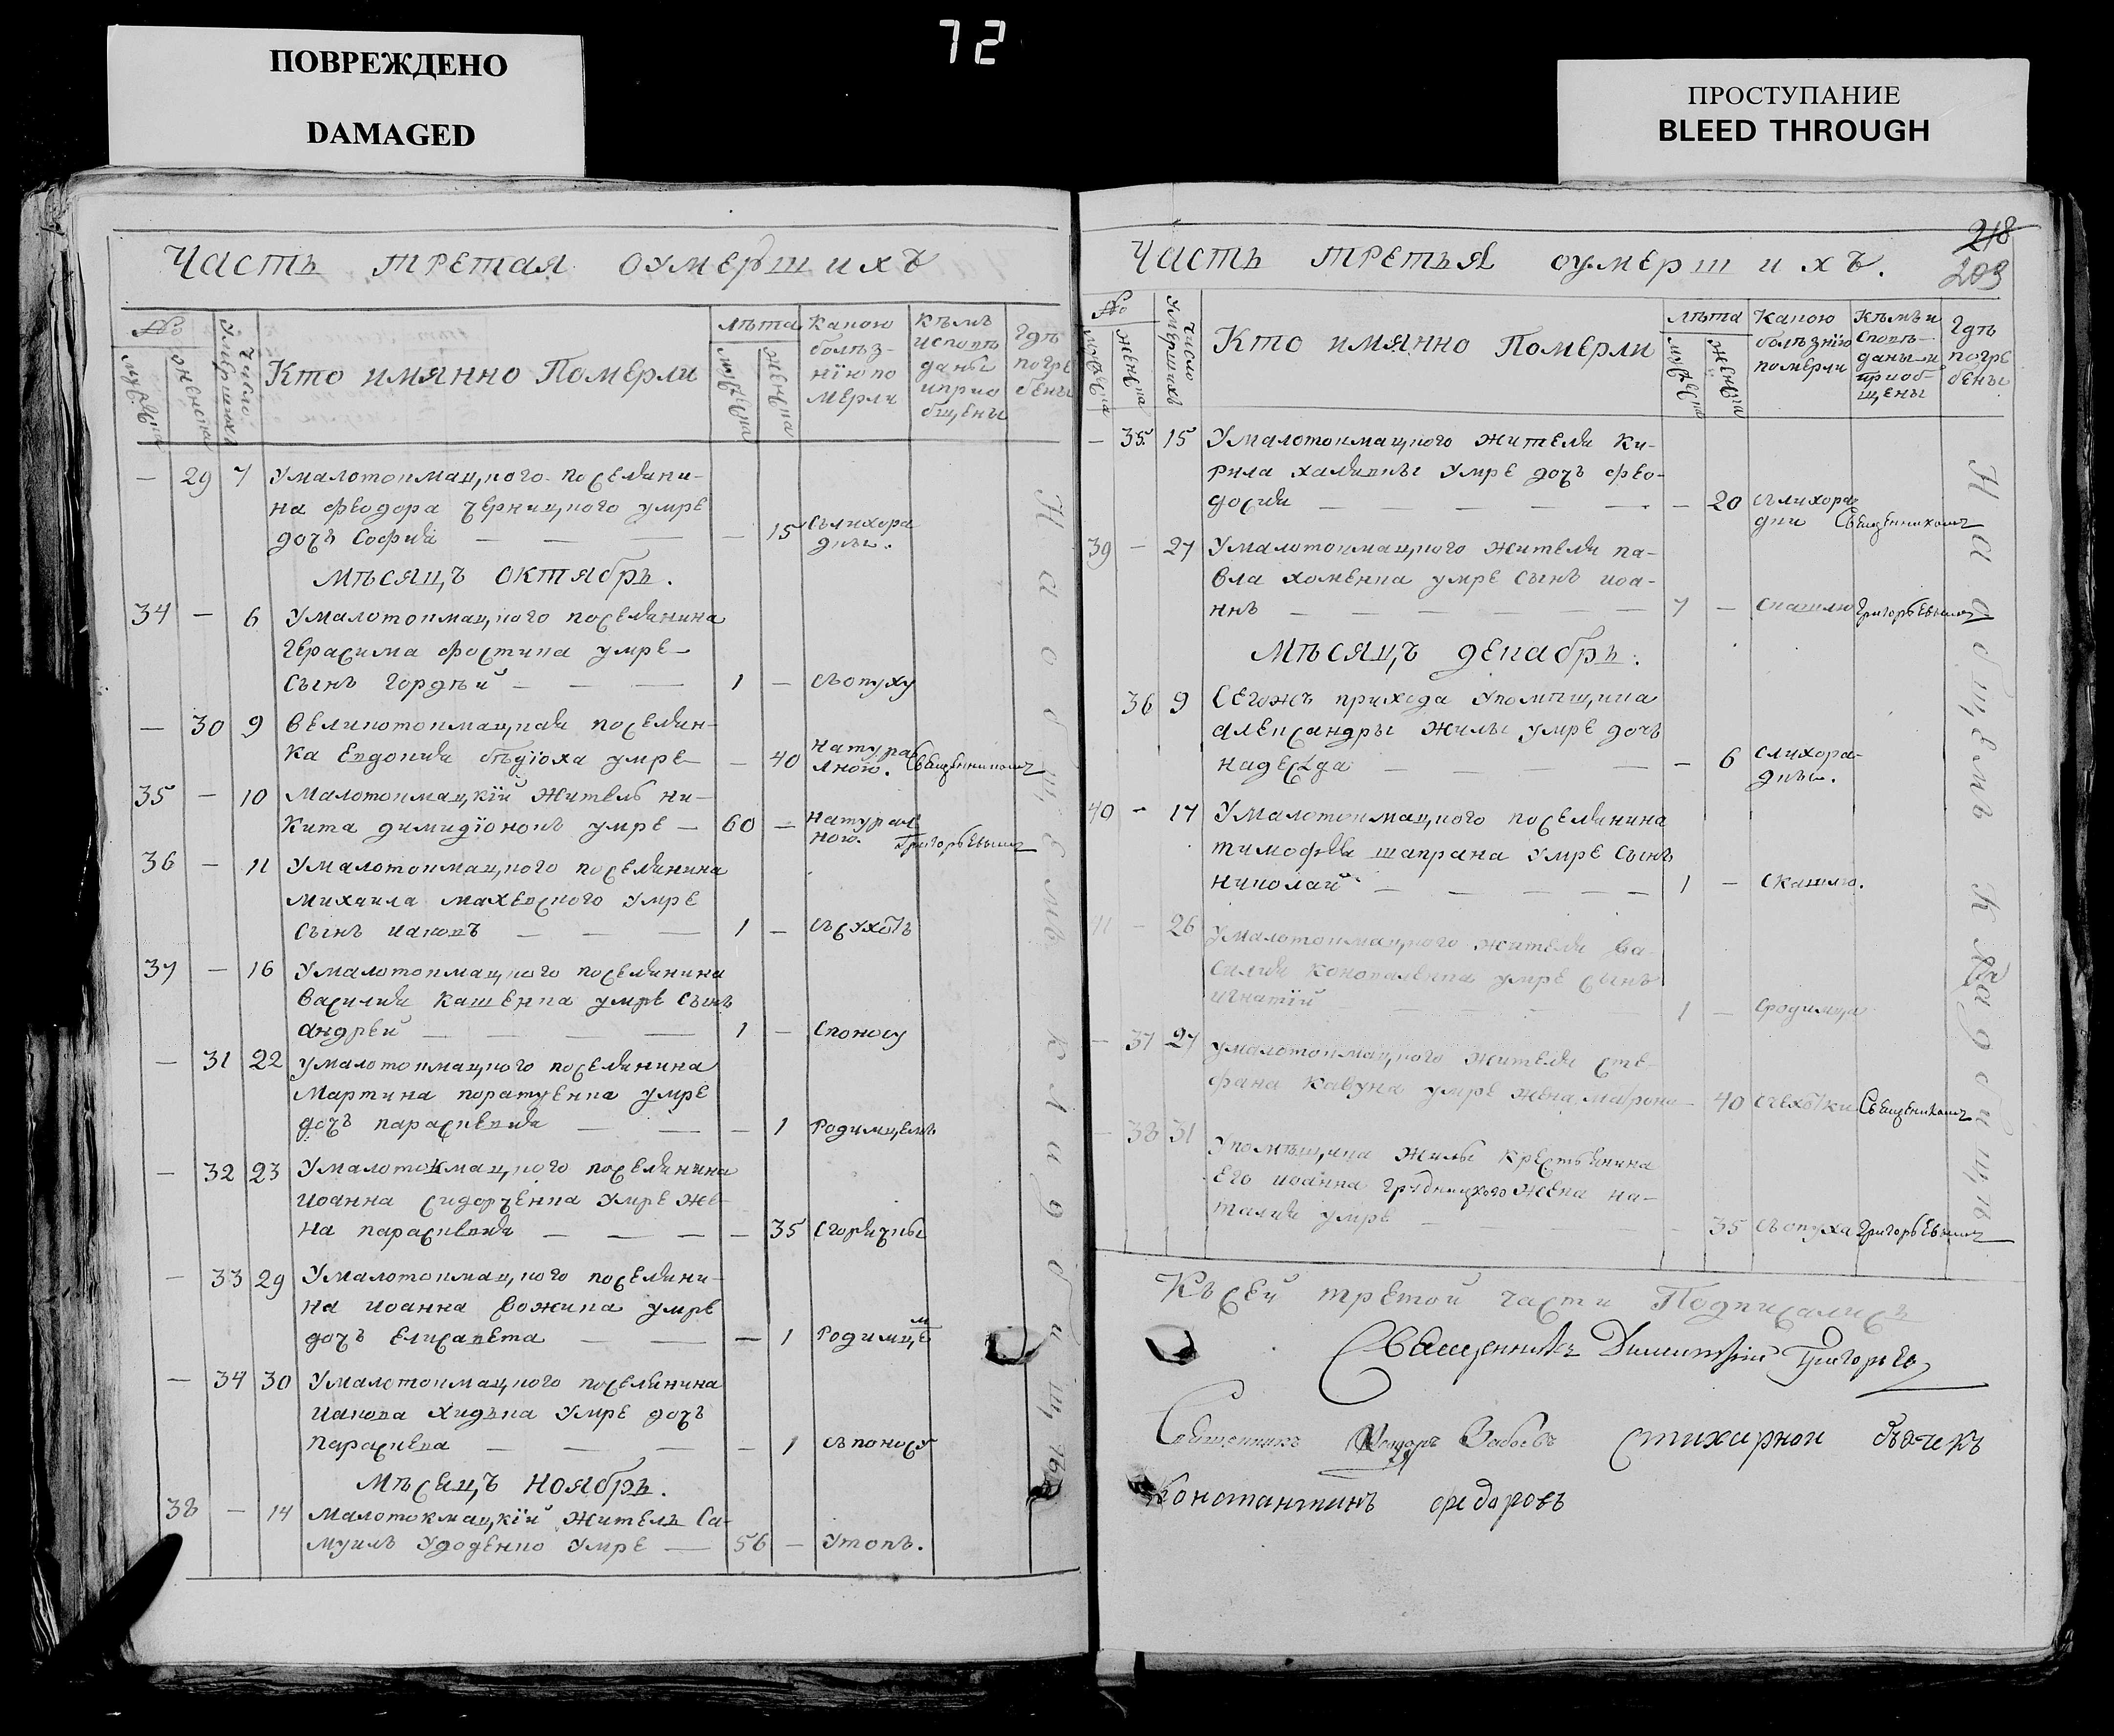 72
ПОВРЕЖДЕНО
DAMAGED
ПРОСТУПАНИЕ
BLEED THROUGH
Часть третая оумершихъ
№
мужеска
женска
Число умершихъ
Кто имянно Померли
лѣта
мужеска
женска
Какою
болѣз-
нїю по
мерли
Кѣмъ
исповѣ
даны
иприо
бщены
Гдѣ
погре
бены
— 29 7 Умалотокмацкого поселяни-
на феодора черницкого умре
дочь София — — — — 15 Сълихора
дны.
мѣсяцъ октябрь.
34 — 6 Умалотокмацкого поселянина
герасима фостика умре
сынъ гордѣй — — — 1 — съопуху
— 30 9 великотокмацкая поселян-
ка Евдокия бѣдїоха умре — 40 натурал
лною. Священникомъ
35 — 10 Малотокмацкїй житель ни-
кита димидїоновъ умре — 60 — натурал
ною. Григорьевымъ
36 — 11 Умалотокмацкого поселянина
михаила махевского умре
сынъ иаковъ — — — 1 — съсухотъ
37 — 16 Умалотокмацкого поселянина
василия кашенка умре сынъ
андрей — — — 1 — споносу
— 31 22 умалотокмацкого поселянина
мартина коратуенка умре
дочь параскевия — — — 1 родимцемъ
— 32 23 Умалотокмацкого поселянина
иоанна сидорченка умре же-
на параскевия — — — — 35 Сгорячкы
— 33 29 Умалотокмацкого поселяни-
на иоанна вожика умре
дочь елисавета — — — 1 родимцем
— 34 30 Умалотокмацкого поселянина
иакова хидька умре дочь
параскева — — — — 1 съпоносу
Мѣсяцъ ноябрь.
38 — 14 малотокмацкїй житель Са-
муилъ удоденко умре — 56 — Утопъ.
На общемъ кладбищѣ
Часть третья оумершихъ.
218
203
№
мужеска
женска
Число умершихъ
Кто имянно Померли
лѣта
мужеска
женска
Какою
болѣзнїю
померли
Кѣмъ и
сповѣ-
даны и
приоб-
щены
Гдѣ
погре
бены
— 35 15 Умалотокмацкого жителя ки-
рила халявки умре дочь фео-
досия — — — — — 20 сълихора
дки Священникомъ
39 — 27 Умалотокмацкого жителя па-
вла хоменка умре сынъ иоа-
ннъ — — — — 7 — скашлю Григорьевымъ
Мѣсяцъ декабрь.
36 9 Сегожъ прихода упомѣщика
александры жилы умре дочь
надежда — — — — 6 слихора-
дны.
40 — 17 Умалотокмацкого поселянина
тимофея шапрана умре сынъ
николай — — — — 1 — скашлю.
41 — 26 умалотокмацкого жителя ва-
силия коноваленка умре сынъ
игнатїй — — — — 1 — сродимца
— 37 27 умалотокмацкого жителя сте-
фана кавуна умре жена матрона — 40 съсхотки Священикомъ
— 38 31 упомѣщика жилы крестьянина
его иоанна гридницкого жена на-
талия умре — — — — 35 съопуха Григорьевымъ
На общемъ кладбищѣ
Къ сей третой части Подписались
Священникъ Димитрїй Григорьев
Священникъ Забоевъ стихарной дьячекъ
Константинъ федоровъ